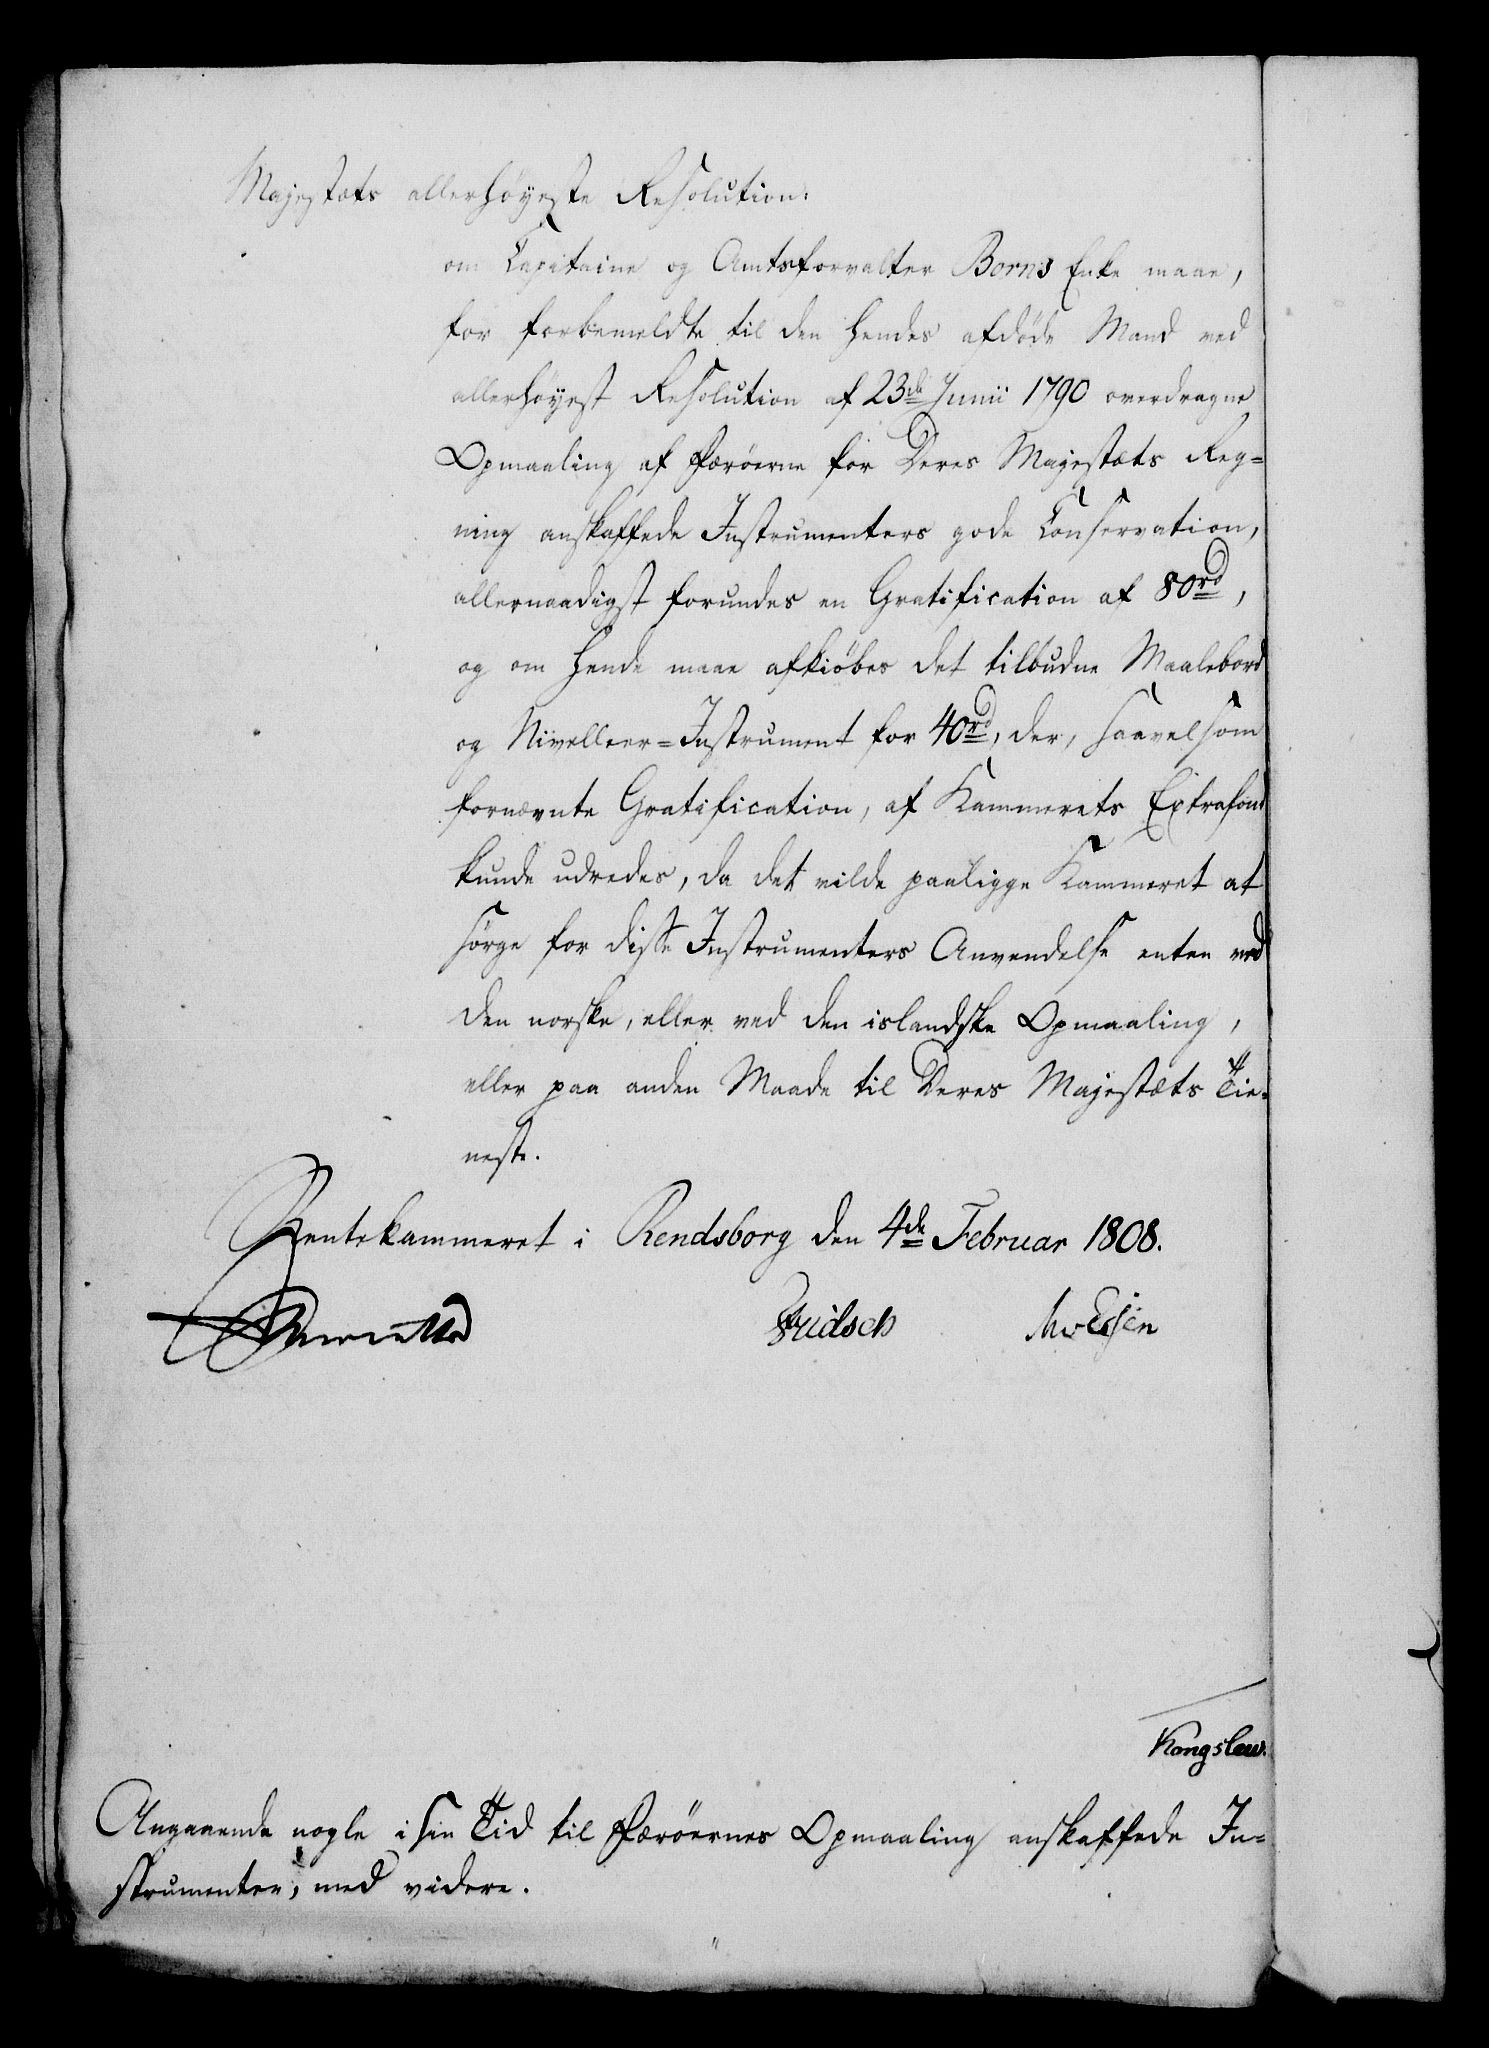 Majestæts allerhöyeste Resolution:
om Capitaine og Amtsforvalter Borns Enke maae,
for forbemeldte til den hendes afdöde Mand ved
allerhöyest Resolution af 23de Junii 1790 overdragne
Opmaaling af Færöerne for Deres Majestæts Reg=
ning anskaffede Instrumenters gode Conservation,
allernaadigst forundes en Gratification af 80rd,
og om hende maae afkiöbes det tilbudne Maalebord
og Nivelleer=Instrument for 40rd, der, saavelsom
fornævnte Gratification, af Kammerets Extrafond
kunde udredes, da det vilde paaligge Kammeret at
sörge for disse Instrumenters Anvendelse enten ved
den norske, eller ved den islandske Opmaaling,
eller paa anden Maade til Deres Majestæts Tie=
neste.
Rentekammeret i Rendsborg den 4de Februar 1808.
Fridsch
Kongslew.
Angaaende nogle i sin Tid til Færöernes Opmaaling anskaffede In=
strumenter, med videre.